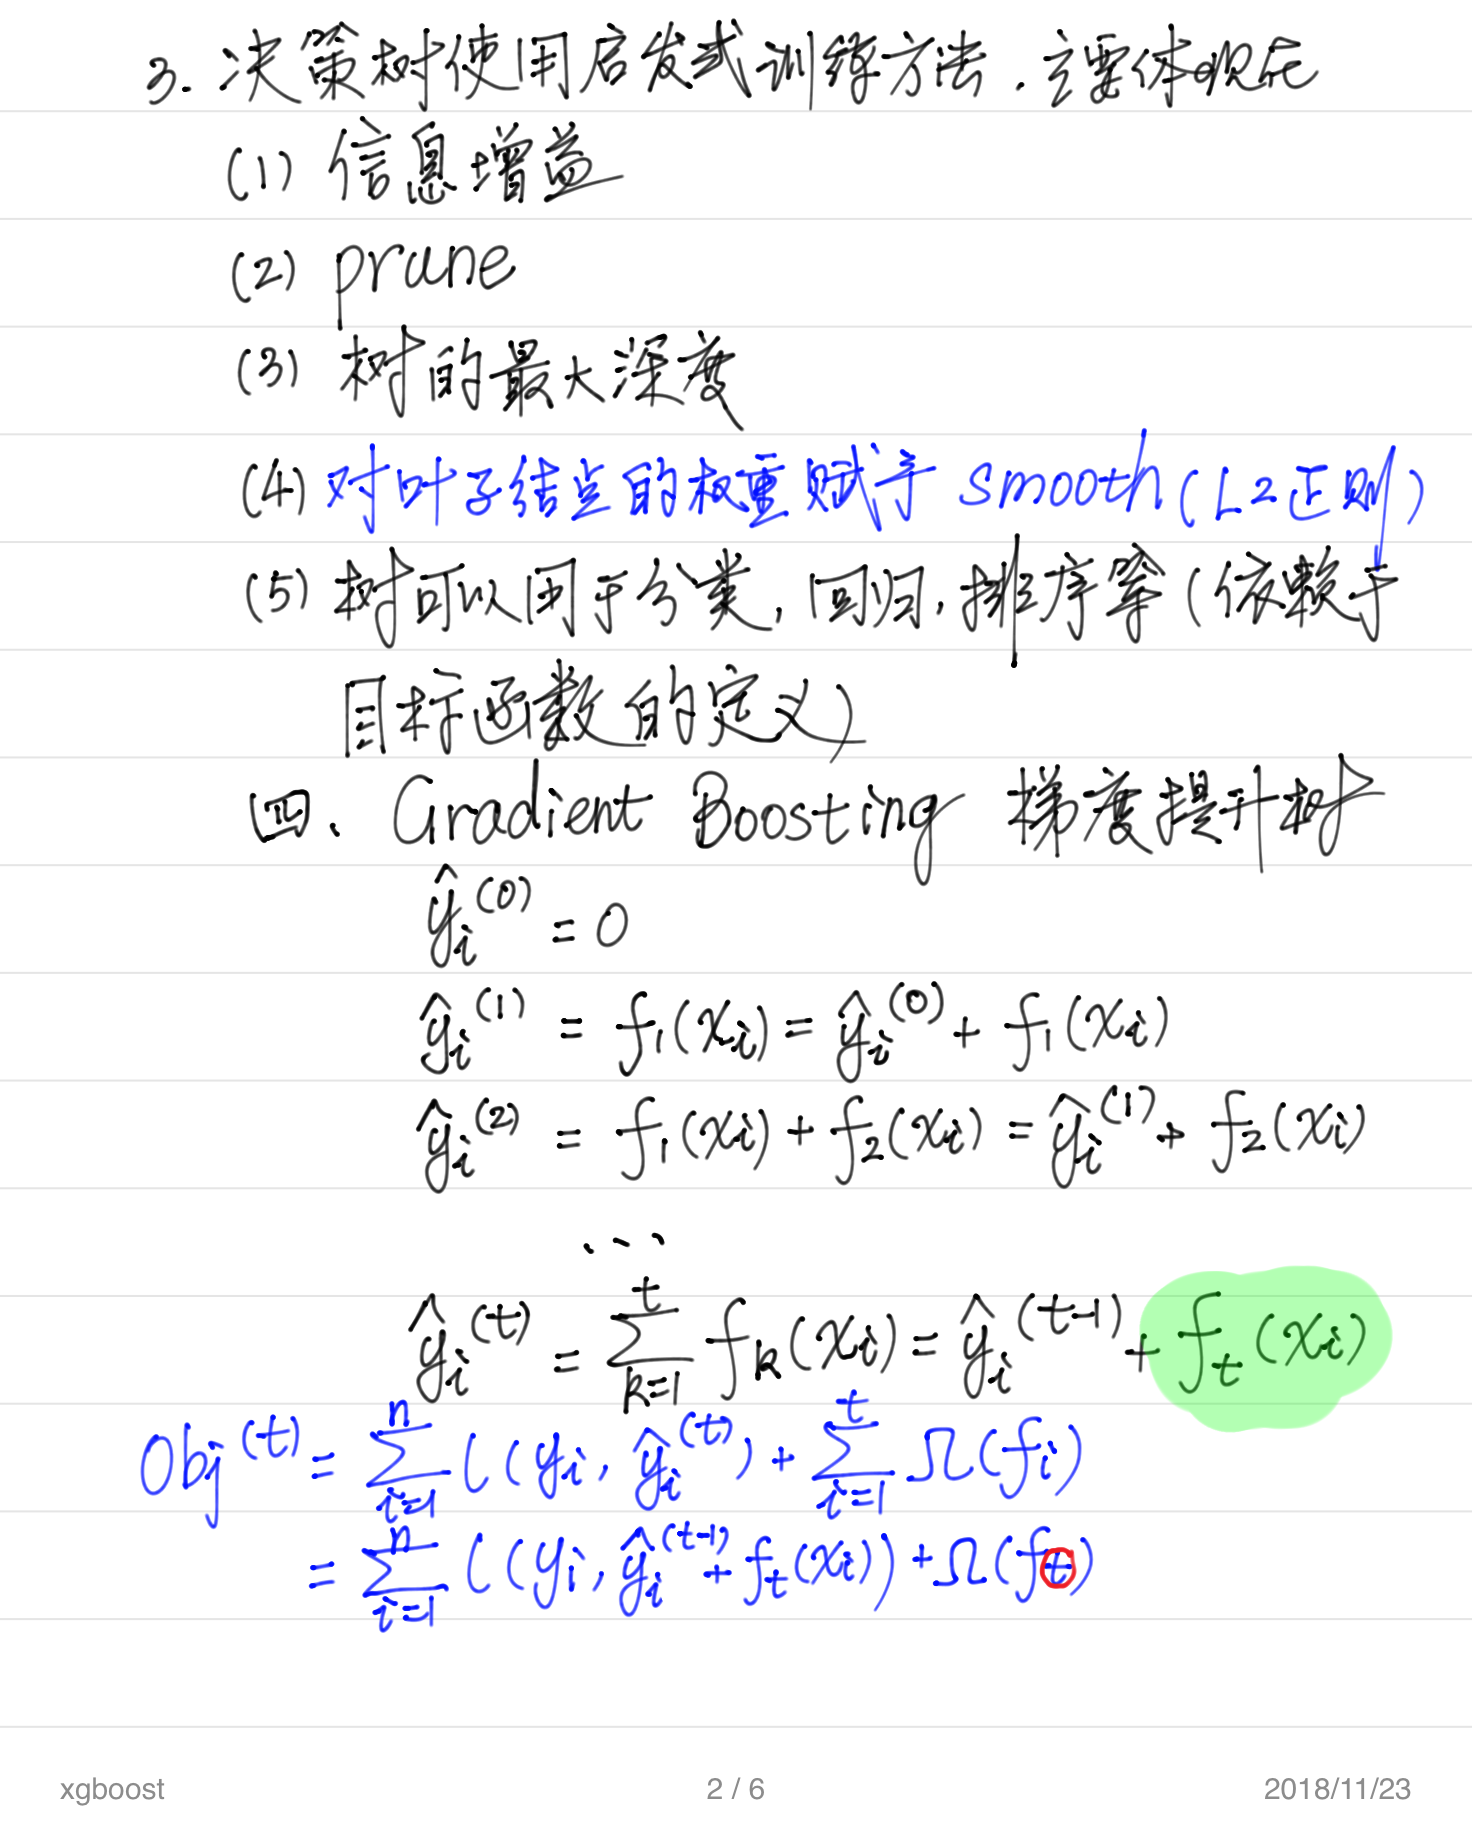 3. 决策树使用启发式训练方法.主要体现在
(1) 信息增益
(2) prune
(3) 树的最大深度
(4) 对叶子结点的权重赋予 smooth (L2正则)
(5) 树可以用于分类, 回归, 排序等 (依赖于
目标函数的定义)
四、Gradient Boosting 梯度提升树
ŷᵢ⁽⁰⁾ = 0
ŷᵢ⁽¹⁾ = f₁(xᵢ) = ŷᵢ⁽⁰⁾ + f₁(xᵢ)
ŷᵢ⁽²⁾ = f₁(xᵢ) + f₂(xᵢ) = ŷᵢ⁽¹⁾ + f₂(xᵢ)
...
ŷᵢ⁽ᵗ⁾ = ∑_{k=1}^{t} f_k(xᵢ) = ŷᵢ⁽ᵗ⁻¹⁾ + f_t(xᵢ)
Obj⁽ᵗ⁾ = ∑_{i=1}^{n} l(yᵢ, ŷᵢ⁽ᵗ⁾) + ∑_{i=1}^{t} Ω(fᵢ)
= ∑_{i=1}^{n} l(yᵢ, ŷᵢ⁽ᵗ⁻¹⁾ + f_t(xᵢ)) + Ω(f_t)
xgboost 2 / 6 2018/11/23